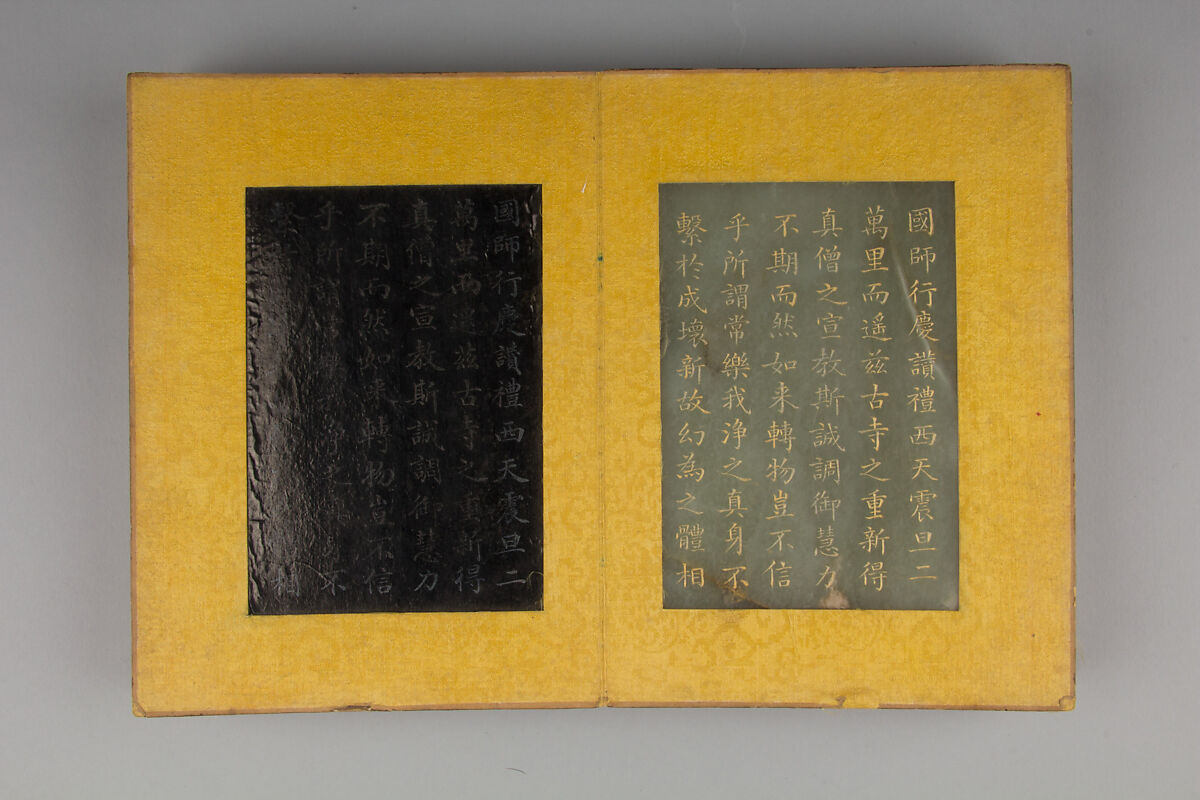 國師行慶讚禮西天震旦二
萬里而遥茲古寺之重新得
真僧之宣教斯誠調御慧力
不期而然如来轉物豈不信
乎所謂常樂我淨之真身不
繫於成壞新故幻為之體相
國師行慶讚禮西天震旦二
萬里而遥茲古寺之重新得
真僧之宣教斯誠調御慧力
不期而然如来轉物豈不信
乎所謂淨之真身不
繫相